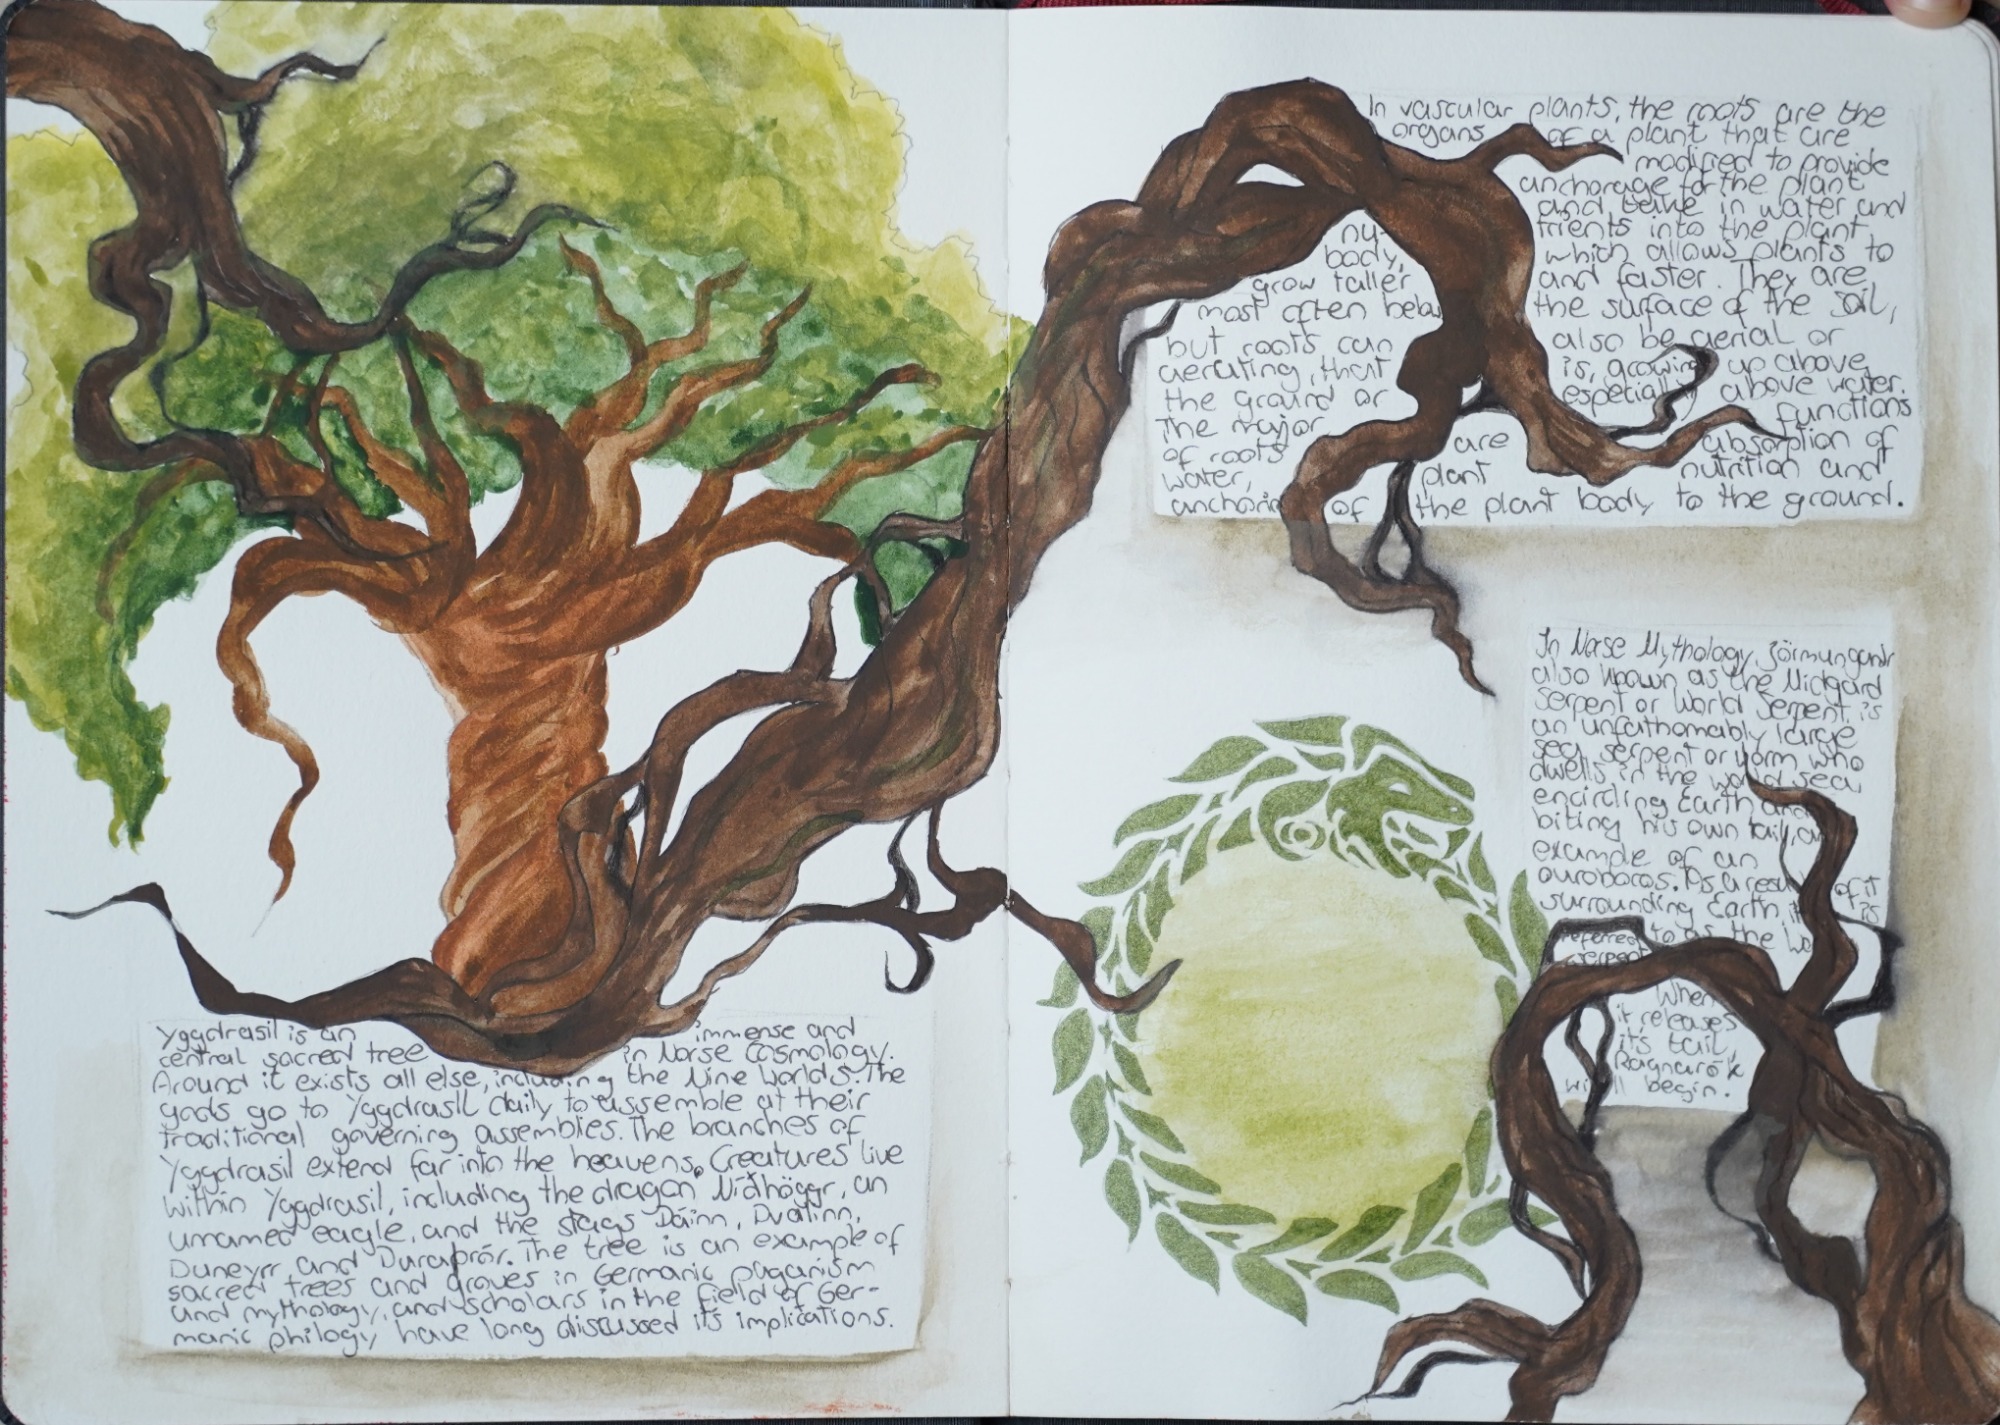 Yggdrasil is an immense and
central sacred tree in Norse Cosmology.
Around it exists all else, including the Nine Worlds. The
gods go to Yggdrasil daily to assemble at their
traditional governing assemblies. The branches of
Yggdrasil extend far into the heavens. Creatures live
within Yggdrasil, including the dragon Níðhöggr, an
unamed eagle, and the stags Dáinn, Dvalinn,
Duneyrr and Duraþrór. The tree is an example of
sacred trees and groves in Germanic paganism
and mythology, and scholars in the field of Ger-
manic philogy have long discussed its implications.
In vascular plants, the roots are the
organs of a plant that are
modified to provide
anchorage for the plant
and take in water and
nu- trients into the plant
body, which allows plants to
grow taller and faster. They are
most often below the surface of the soil,
but roots can also be aerial or
aerating, that is, growing up above
the ground or especially above water.
The major functions
of roots are absorption of
water, plant nutrition and
anchoring of the plant body to the ground.
In Norse Mythology, Jörmungandr
also known as the Midgard
Serpent or World Serpent, is
an unfathomably large
sea serpent or worm who
dwells in the world sea,
encircling Earth and
biting his own tail, an
example of an
ouroboros. As a result of it
surrounding Earth, it is
referred to as the Wo
serpent
When
it releases
its tail,
Ragnarök
will begin.